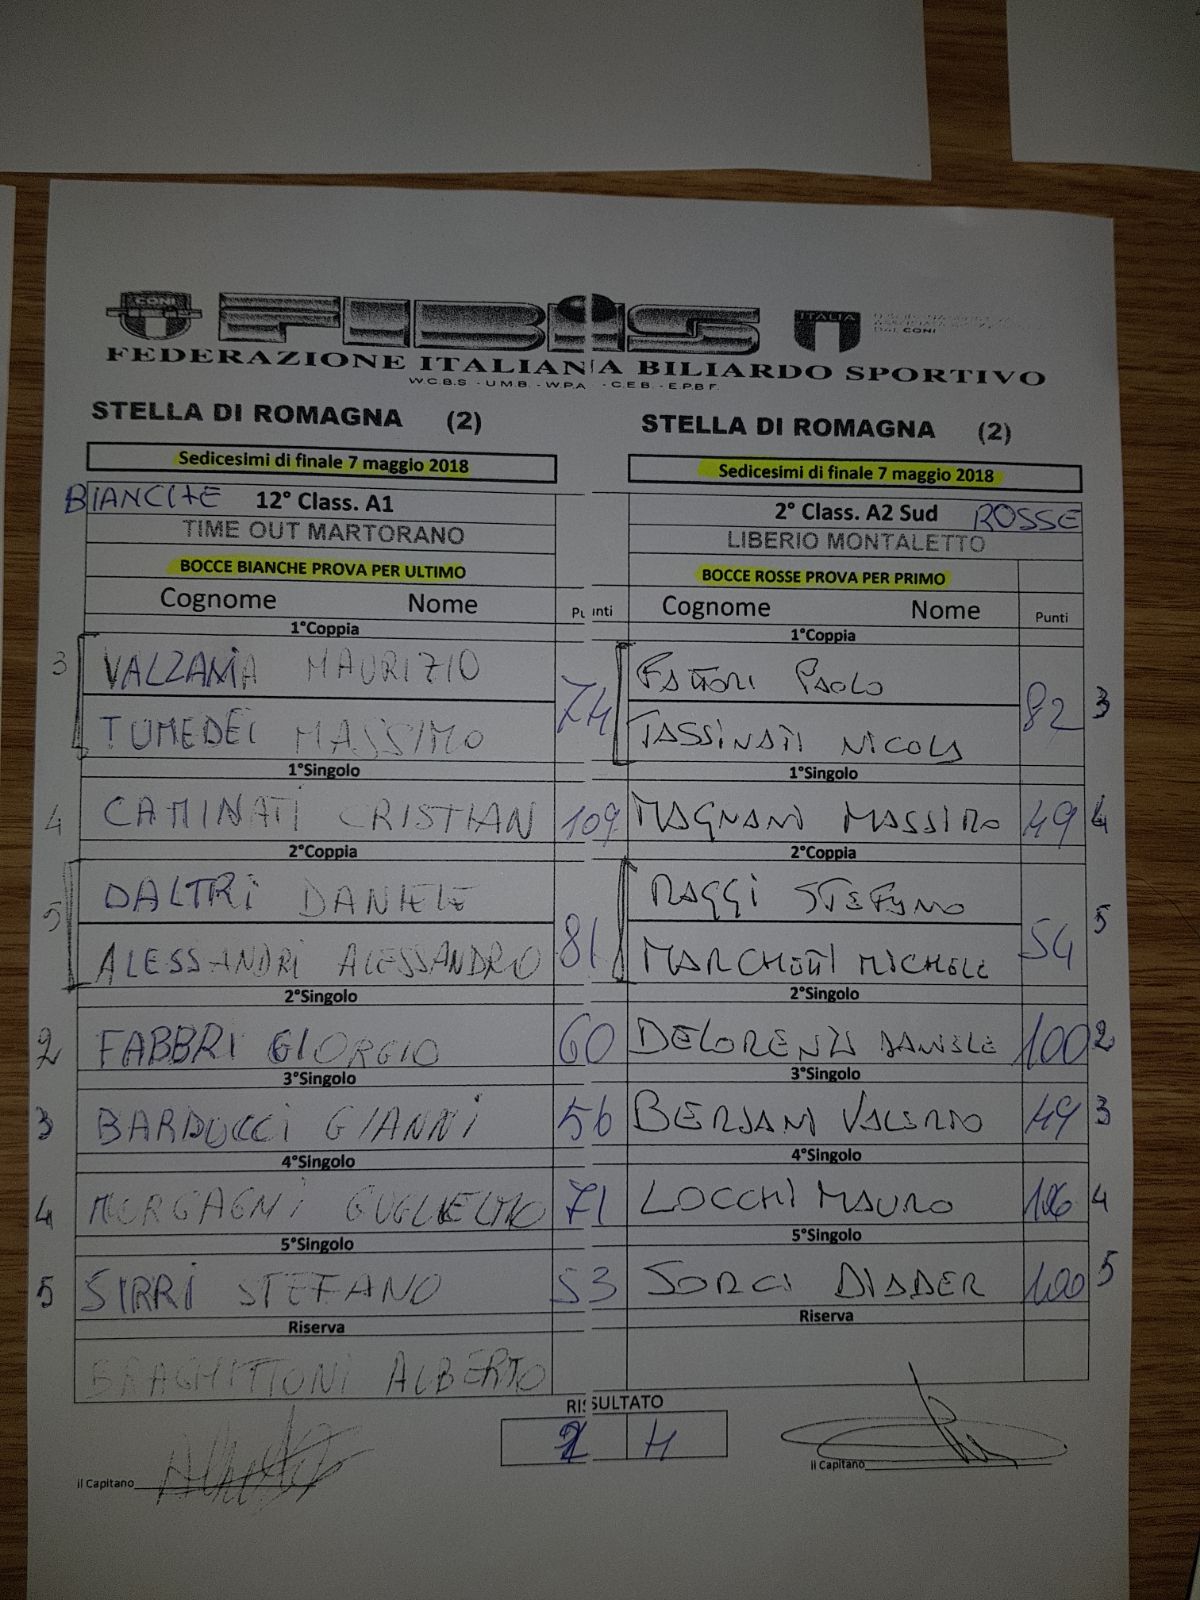 CONI FIBIS ITALIA
FEDERAZIONE ITALIANA BILIARDO SPORTIVO
W.C.B.S - U.M.B. - W.P.A. - C.E.B. - E.P.B.F.
STELLA DI ROMAGNA (2) STELLA DI ROMAGNA (2)
Sedicesimi di finale 7 maggio 2018 Sedicesimi di finale 7 maggio 2018
BIANCHE 12° Class. A1 2° Class. A2 Sud ROSSE
TIME OUT MARTORANO LIBERIO MONTALETTO
BOCCE BIANCHE PROVA PER ULTIMO BOCCE ROSSE PROVA PER PRIMO
Cognome Nome Punti Cognome Nome Punti
1°Coppia 1°Coppia
3 VALZANIA MAURIZIO 74 FATTORI PAOLO 82 3
TUMEDEI MASSIMO TASSINATI NICOLA
1°Singolo 1°Singolo
4 CAMINATI CRISTIAN 109 MAGNANI MASSIMO 49 4
2°Coppia 2°Coppia
5 DALTRI DANIELE 81 RAGGI STEFANO 54 5
ALESSANDRI ALESSANDRO MARCHETTI MICHELE
2°Singolo 2°Singolo
2 FABBRI GIORGIO 60 DELORENZI DANIELE 100 2
3°Singolo 3°Singolo
3 BARDUCCI GIANNI 56 BERSANI VALERIO 49 3
4°Singolo 4°Singolo
4 MORGAGNI GUGLIELMO 71 LOCCHI MAURO 106 4
5°Singolo 5°Singolo
5 SIRRI STEFANO 53 SORCI DIADER 100 5
Riserva Riserva
BRAGHITTONI ALBERTO
RISULTATO
4
il Capitano il Capitano